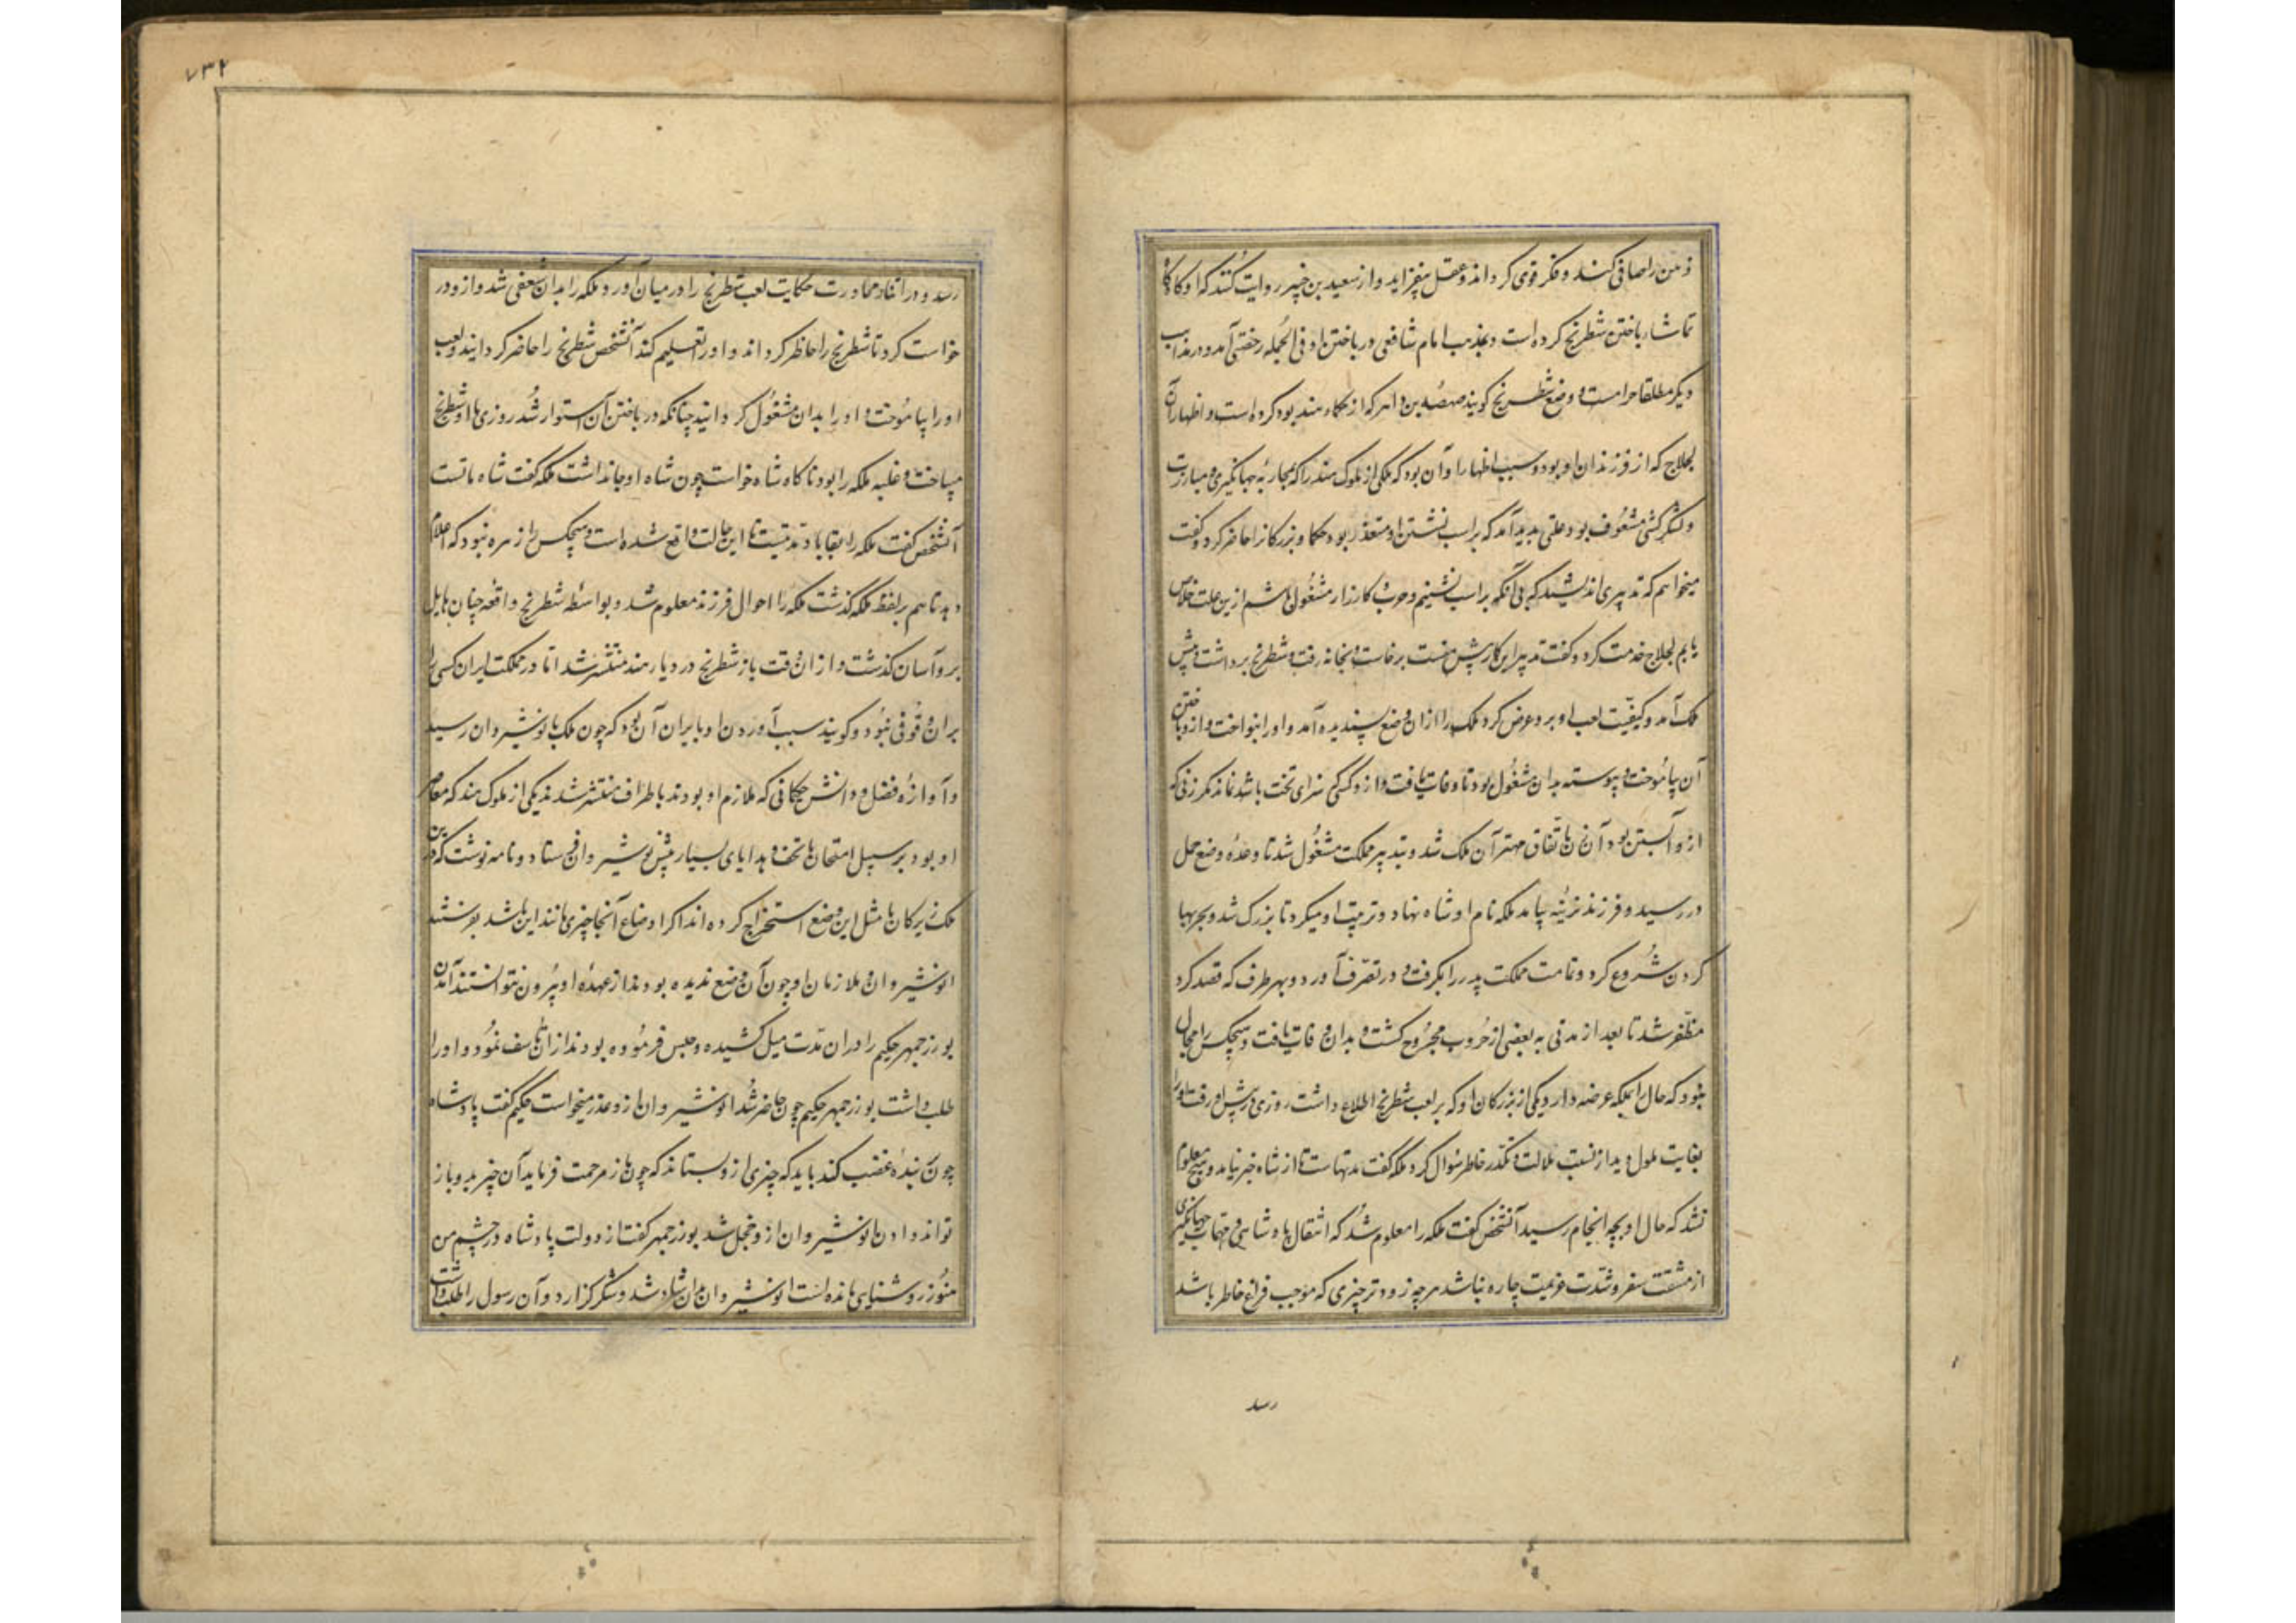 ذهن را صافی کند و فکر قوی کرداند و عقل بیفزاید و از سعید بن جبیر روایت کنند که او کاه کاه
تماشاء باختن شطرنج کرده است و بمذهب امام شافعی در باختن او فی الجمله رخصتی آمد و در مذاهب
دیکر مطلقا حرامست و وضع شطرنج کویند صصه بن داهر که از حکماء هند بود کرده است و اظهار آن
لجلاج که از فرزندان او بود و سبب اظهار او آن بود که ملکی از ملوک هند را که بمحاربه جهانکیری و مبارزت
و لشکرکشی مشعوف بود علتی پدید آمد که بر اسب نشستن او متعذر بود حکما و بزرکانرا حاضر کرد و کفت
میخواهم که تدبیری اندیشید که بی آنکه بر اسب نشینم و حرب و کارزار مشغول باشم ازین علت خلاص
یابم لجلاج خدمت کرد و کفت تدبیر این کار پیش منست برخاست و بخانه رفت و شطرنج برداشت و پیش
ملک آمد و کیفیت لعب او برو عرض کرد ملک را از آن وضع پسندیده آمد و او را بنواخت و ازو باختن
آن بیاموخت و پیوسته بدان مشغول بود تا وفات یافت و ازو کسی سزای تخت باشد نماند مکر زنی که
ازو آبستن بود آن زن باتفاق مهتر آن ملک شد و بتدبیر مملکت مشغول شد تا وعده وضع حمل
در رسید و فرزند نرینه بیامد ملکه نام او شاه نهاد و تربیت او میکرد تا بزرک شد و بحربها
کردن شروع کرد و تمامت مملکت پدر را بکرفت و در تصرف آورد و بهر طرف که قصد کرد
مظفر شد تا بعد از مدتی به بعضی از حروب مجروح کشت و بدان وفات یافت و هیچکس را مجال
نبود که حال را بملکه عرضه دارد یکی از بزرکان او که بر لعب شطرنج اطلاع داشت روزی در پیش او رفت او را
بغایت ملول دید از نسبت ملالت و تکدر خاطر سؤال کرد ملکه کفت مدتهاست تا از شاه خبر نیامد و هیچ معلوم
نشد که حال او بچه انجام رسید آنشخص کفت ملکه را معلوم شد که اشتغال پادشاهی و مهمات جهانکیری
از مشقت سفر و شدت عزیمت چاره نباشد هرچه زودتر چیزی که موجب فراغ خاطر باشد
رسد
۷۳۲
رسد و در اثناء محاورت حکایت لعب شطرنج را در میان آورد و ملکه را بدان شعفی شد و ازو در
خواست کرد تا شطرنج را حاظر کرداند و او را تعلیم کند آنشخص شطرنج را حاضر کردانید و لعب
او را بیاموخت و او را بدان مشغول کردانید چنانکه در باختن آن استوار شد روزی با او شطرنج
میباخت و غلبه ملکه را بود ناکاه شاه خواست چون شاه او جا نداشت ملکه کفت شاه ماتست
آنشخص کفت ملکه را بقا باد مدتیست تا این حالت واقع شده است و هیچکس را زهره نبود که اعلام
دهد تا هم بر لفظ ملکه کذشت ملکه را احوال فرزند معلوم شد و بواسطه شطرنج واقعه چنان هایل
برو آسان کذشت و از آن وقت باز شطرنج در دیار هند منتشر شد اما در مملکت ایران کسی را
بر آن وقوفی نبود و کویند سبب آوردن او بایران آن بود که چون ملک بانوشیروان رسید
و آوازه فضل و دانش حکمائی که ملازم او بودند باطراف منتشر شد یکی از ملوک هند که معاصر
او بود بر سبیل امتحان با تحف و هدایای بسیار پیش نوشیروان فرستاد و نامه نوشت که درین
ملک زیرکان ما مثل این وضع استخراج کرده اند اکر اوضاع آنجا چیزی مانند این باشد بفرستند
انوشیروان و ملازمان او چون آن وضع ندیده بودند از عهده او بیرون نتوانستند آمدن
بوزرجمهر حکیم را در آن مدت میل کشیده و حبس فرموده بودند از آن تأسف نمود و او را
طلب داشت بوزرجمهر حکیم چون حاضر شد انوشیروان ازو عذر میخواست حکیم کفت پادشاه
چون بر بنده غضب کند باید که چیزی ازو بستاند که چون باز مرحمت فرماید آن چیز بدو باز
تواند دادن انوشیروان ازو خجل شد بوزرجمهر کفت از دولت پادشاه در چشم من
هنوز روشنایی مانده است انوشیروان بدان شاد شد و شکر کزارد و آن رسول را طلب داشت